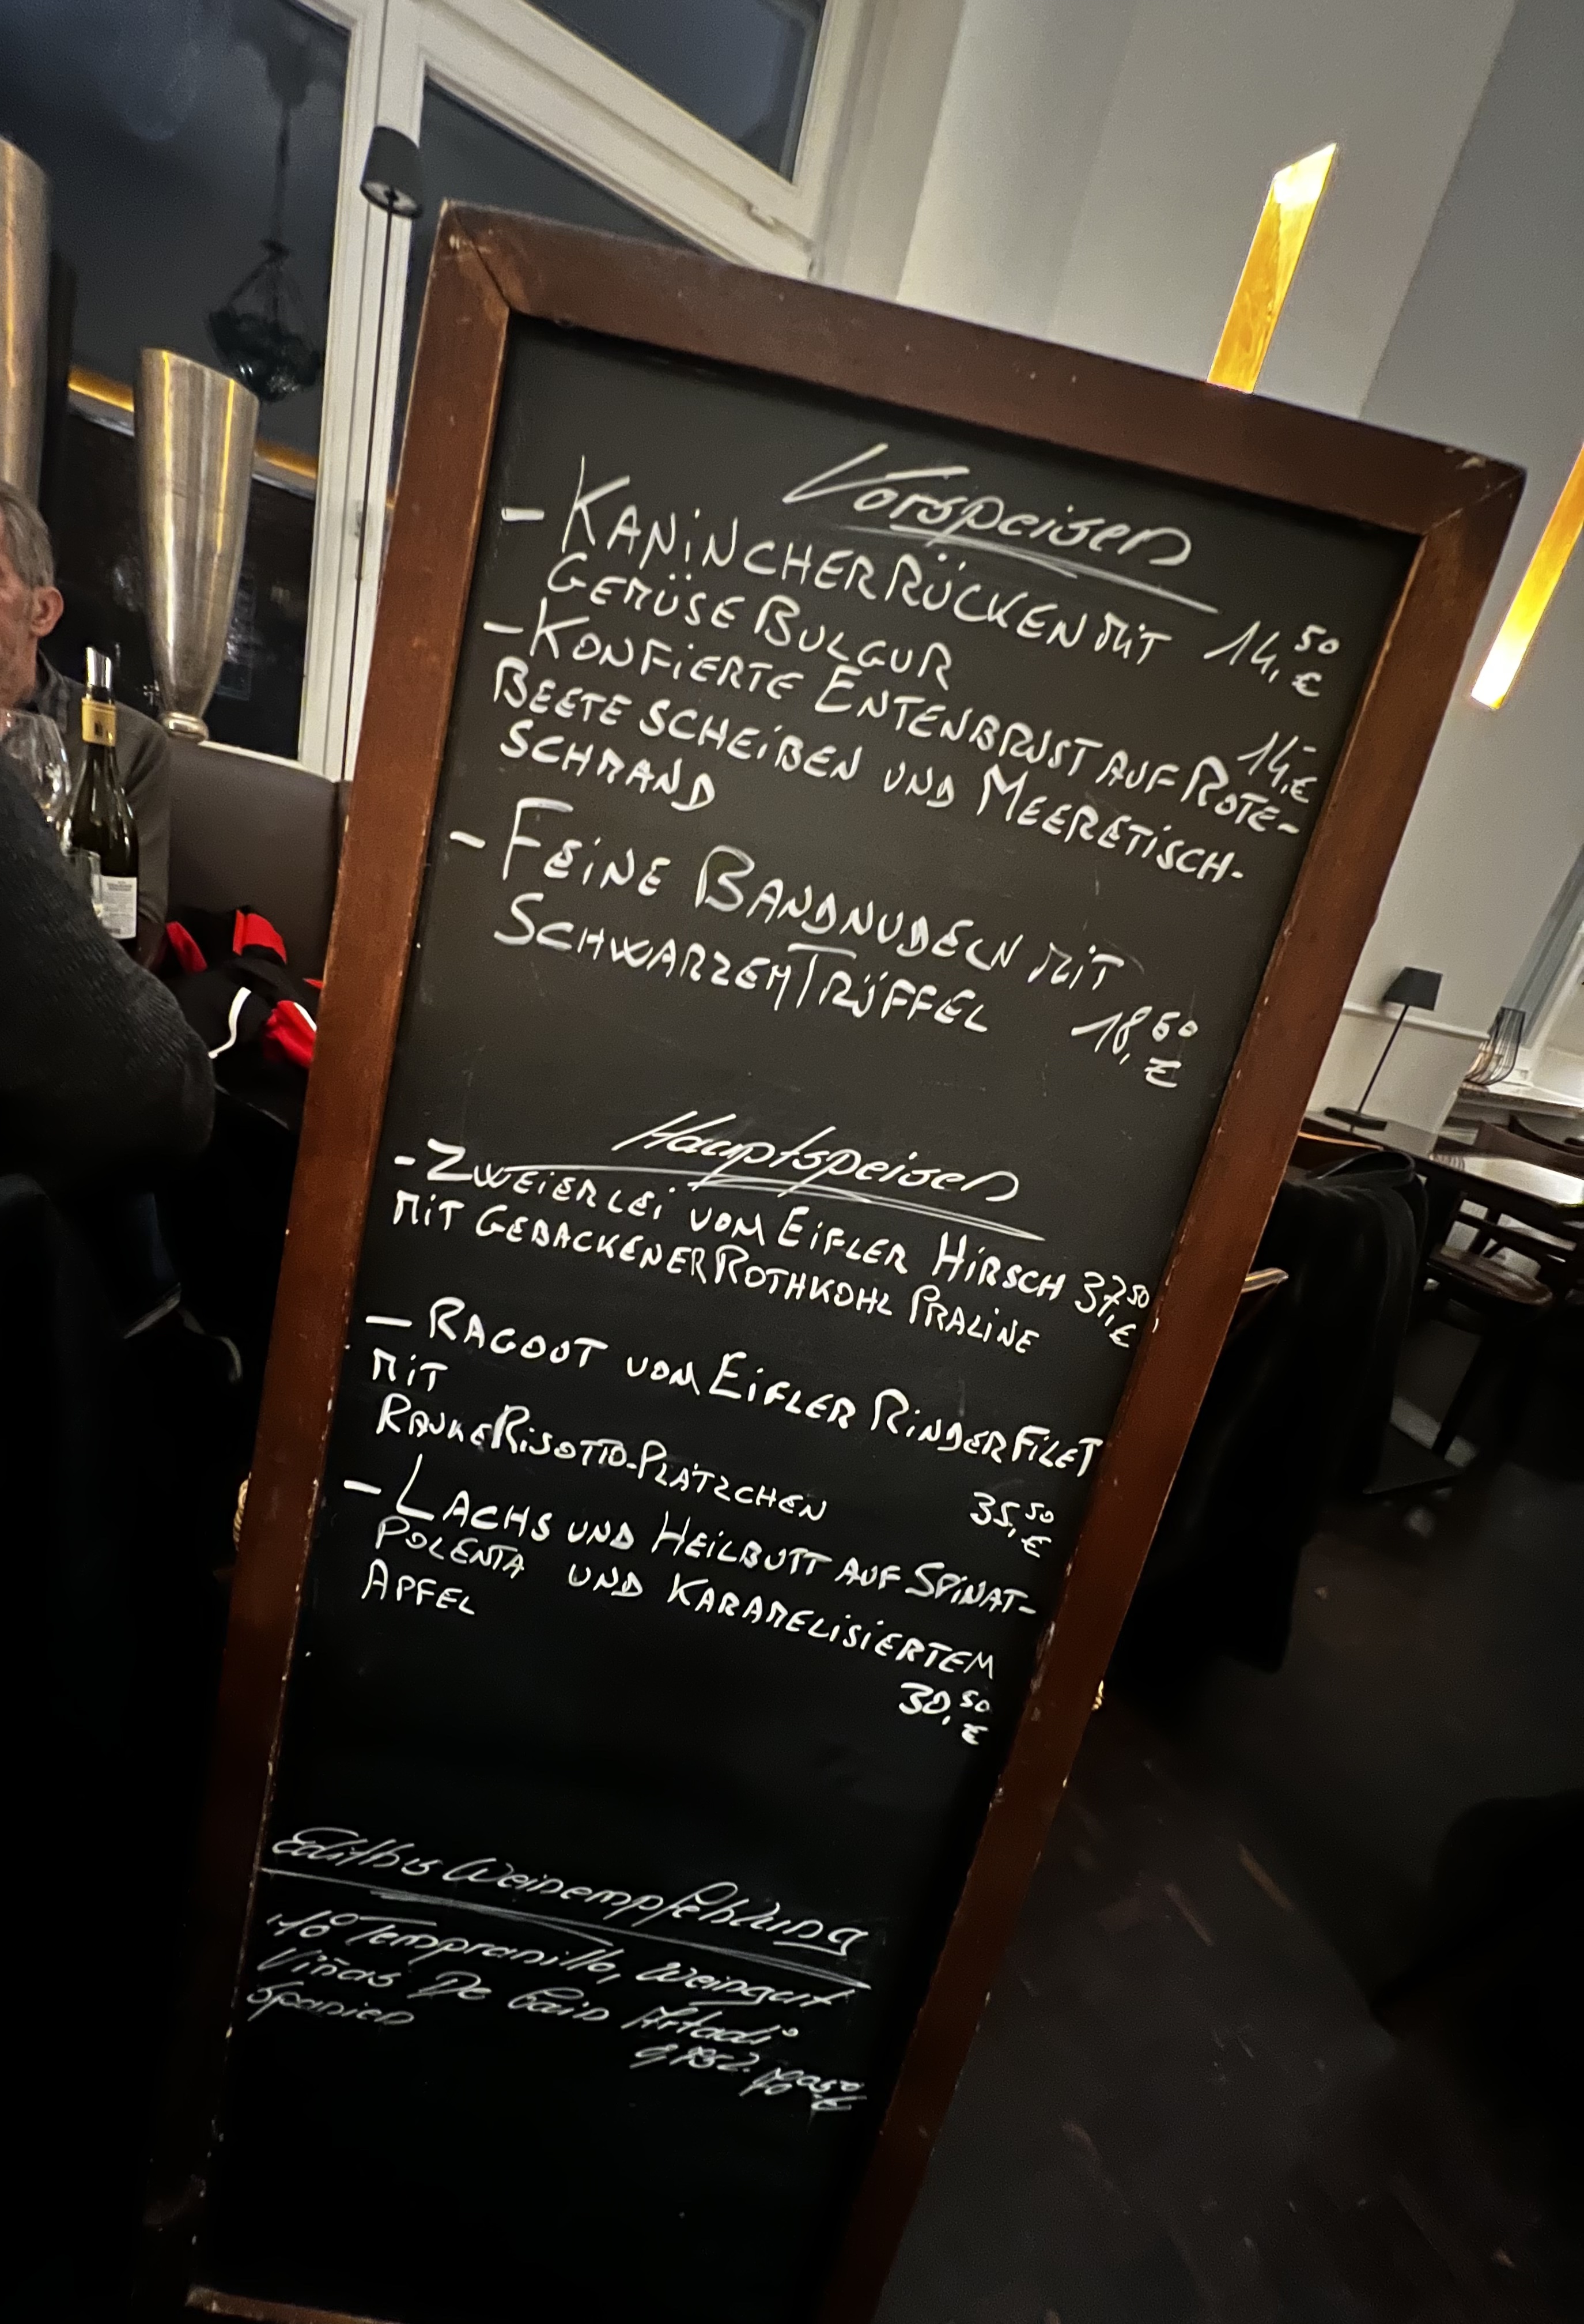 Vorspeisen
- KANINCHERRÜCKEN MIT 14,50 €
GEMÜSE BULGUR
- KONFIERTE ENTENBRUST AUF ROTE-
14,- €
BEETE SCHEIBEN UND MEERETISCH-
SCHMAND
- FEINE BANDNUDELN MIT
SCHWARZEM TRÜFFEL 18,50 €
Hauptspeisen
- ZWEIERLEI VOM EIFLER HIRSCH 37,50 €
MIT GEBACKENER ROTHKOHL PRALINE
- RAGOUT VOM EIFLER RINDERFILET
MIT
RAUKE RISOTTO-PLÄTZCHEN 35,50 €
- LACHS UND HEILBUTT AUF SPINAT-
POLENTA UND KARAMELISIERTEM
APFEL
30,50 €
Ediths Weinempfehlung
Tempranillo, Weingut
Viñas De Gain Artadi
Spanien